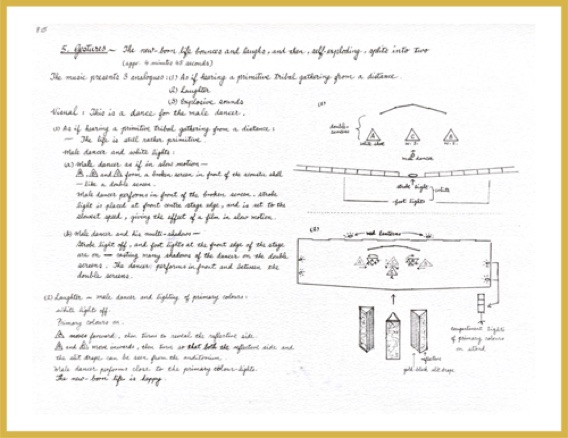 5. Gestures — The new-born life bounces and laughs, and then, self-exploding, splits into two
(appr. 4 minutes 45 seconds)
The music presents 3 analogues (1) As if hearing a primitive tribal gathering from a distance.
(2) Laughter
(3) Explosive sounds
Visual : This is a dance for the male dancer.
(1) As if hearing a primitive tribal gathering from a distance :
— The life is still rather primitive.
Male dancer and white lights :
(a) Male dancer as if in slow motion —
and form a broken screen in front of the acoustic shell
— like a double screen.
Male dancer performs in front of the broken screen. Strobe
light is placed at front centre stage edge, and is set to the
slowest speed, giving the effect of a film in slow motion.
(b) Male dancer and his multi-shadows —
Strobe light off, and foot lights at the front edge of the stage
are on — casting many shadows of the dancer on the double
screens. The dancer performs in front and between the
double screens.
(2) Laughter — male dancer and lighting of primary colours :
White lights off.
Primary colours on.
moves forward, then turns to reveal the reflective side.
and move inwards, then turn so that both the reflective side and
the slit drape can be seen from the auditorium.
Male dancer performs close to the primary colour-lights.
The new-born life is happy.
(1)
double-screens
white shell
male dancer
strobe light
white
foot lights
(2)
red lanterns
compartment lights
of primary colours
on stand
reflective
gold slit drape